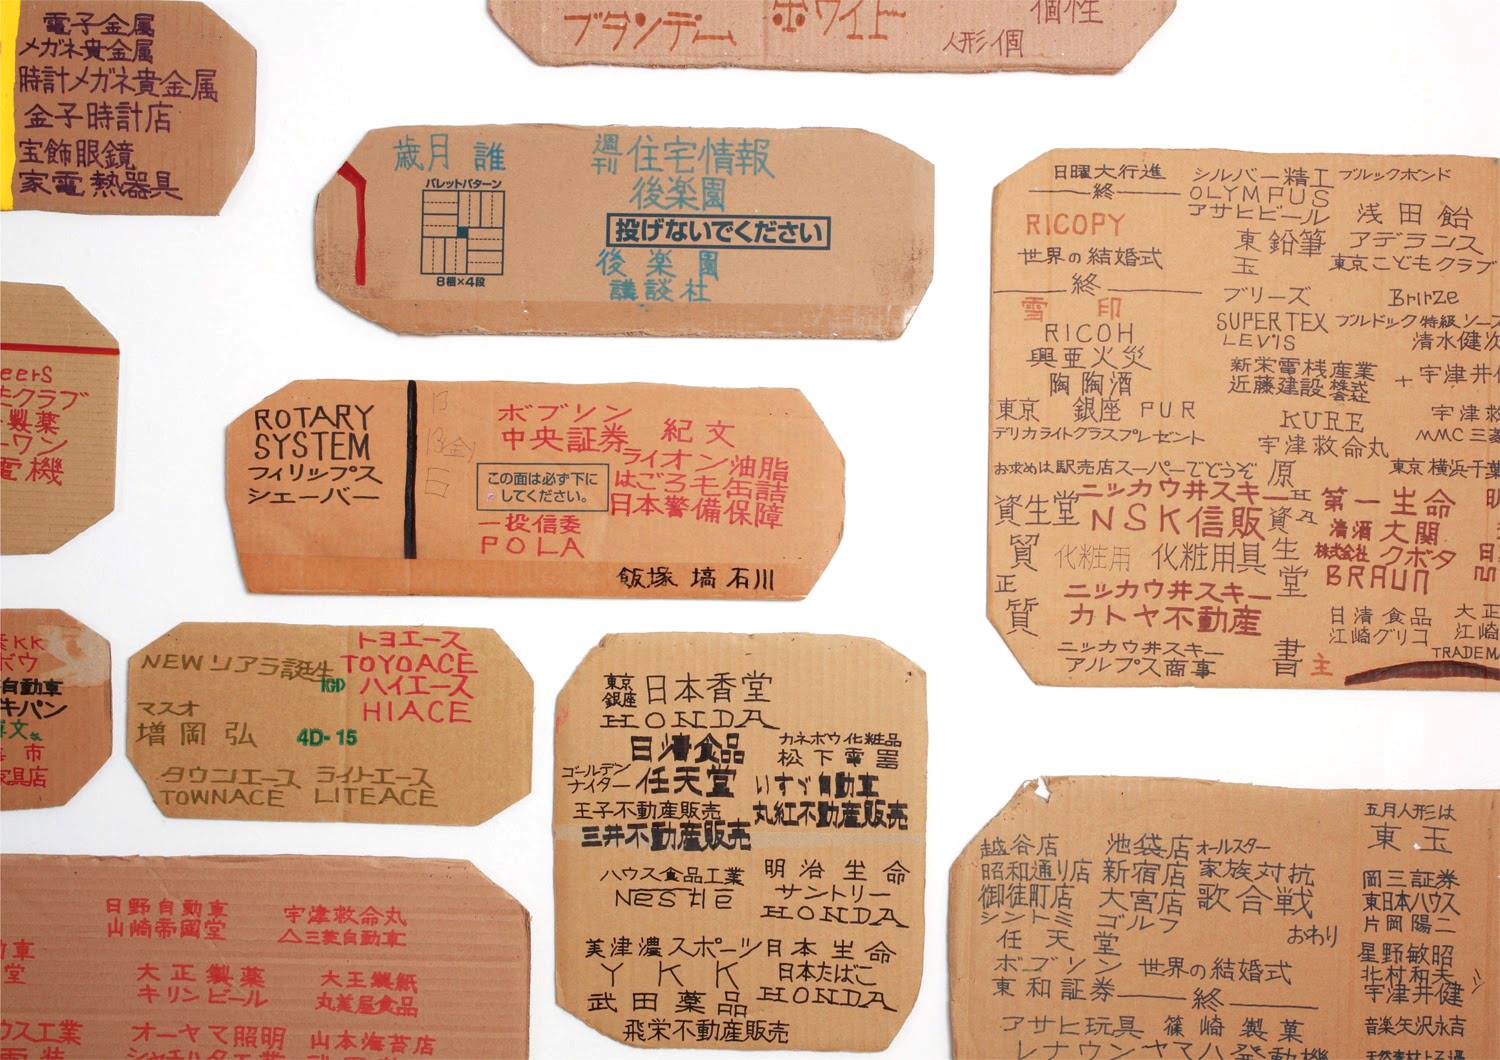 電子金属
メガネ貴金属
時計メガネ貴金属
金子時計店
宝飾眼鏡
家電熱器具
ブランデー
ホワイト
個性
人形個
歳月 誰
パレットパターン
8梱×4段
週刊住宅情報
後楽園
投げないでください
後楽園
講談社
日曜大行進
終
RICOPY
世界の結婚式
終
雪 印
RICOH
興亜火災
陶陶酒
東京 銀座 PUR
デリカライトクラスプレゼント
お求めは駅売店スーパーでどうぞ
シルバー精工
OLYMPUS
アサヒビール
東鉛筆
玉
ブリーズ
SUPERTEX
LEV'IS
新栄電桟産業
近藤建設株式会社
KURE
宇津救命丸
原
ブルックボンド
浅田飴
アデランス
東京こどもクラブ
Brirze
ブルドック特級ソー
清水健次
+宇津井
宇津救
MMC三菱
東京横浜千葉
ニッカウ井スキー
資生堂
NSK信販
質
化粧用 化粧用具
正
質
ニッカウ井スキー
カトヤ不動産
ニッカウ井スキー
アルプス商事
生
堂
書
主
第一生命
清酒大関
株式会社クボタ
BRAUN
日清食品
江崎グリコ
大正
江崎
TRADEMA
eers
クラブ
製薬
ワン
電機
ROTARY
SYSTEM
フィリップス
シェーバー
13
13(金)
日
ボブソン
中央証券 紀文
ライオン油脂
はごろも缶詰
日本警備保障
この面は必ず下に
してください。
一投信委
POLA
飯塚 塙 石川
KK
ボウ
自動車
キパン
市
家具店
NEWリアラ誕生
IGD
マスオ
増岡弘
4D-15
トヨエース
TOYOACE
ハイエース
HIACE
タウンエース ライトエース
TOWNACE LITEACE
東京
銀座
日本香堂
HONDA
日清食品
カネボウ化粧品
松下電器
ゴールデン
ナイター
任天堂
いすゞ自動車
王子不動産販売
丸紅不動産販売
三井不動産販売
ハウス食品工業
Nestle
明治生命
サントリー
HONDA
美津濃スポーツ
YKK
武田薬品
日本生命
日本たばこ
HONDA
飛栄不動産販売
日野自動車
山崎帝國堂
宇津救命丸
△三菱自動車
車
堂
大正製薬
キリンビール
大王製紙
丸美屋食品
ウス工業
オーヤマ照明
山本海苔店
越谷店
昭和通り店
御徒町店
池袋店
新宿店
大宮店
オールスター
家族対抗
歌合戦
シントミ ゴルフ
任天堂
おわり
ボブソン
世界の結婚式
東和証券
終
アサヒ玩具
篠崎製菓
レナウン
ヤマハ発動機
五月人形は
東玉
岡三証券
東日本ハウス
片岡陽二
星野敏昭
北村和夫
宇津井健
音楽矢沢永吉